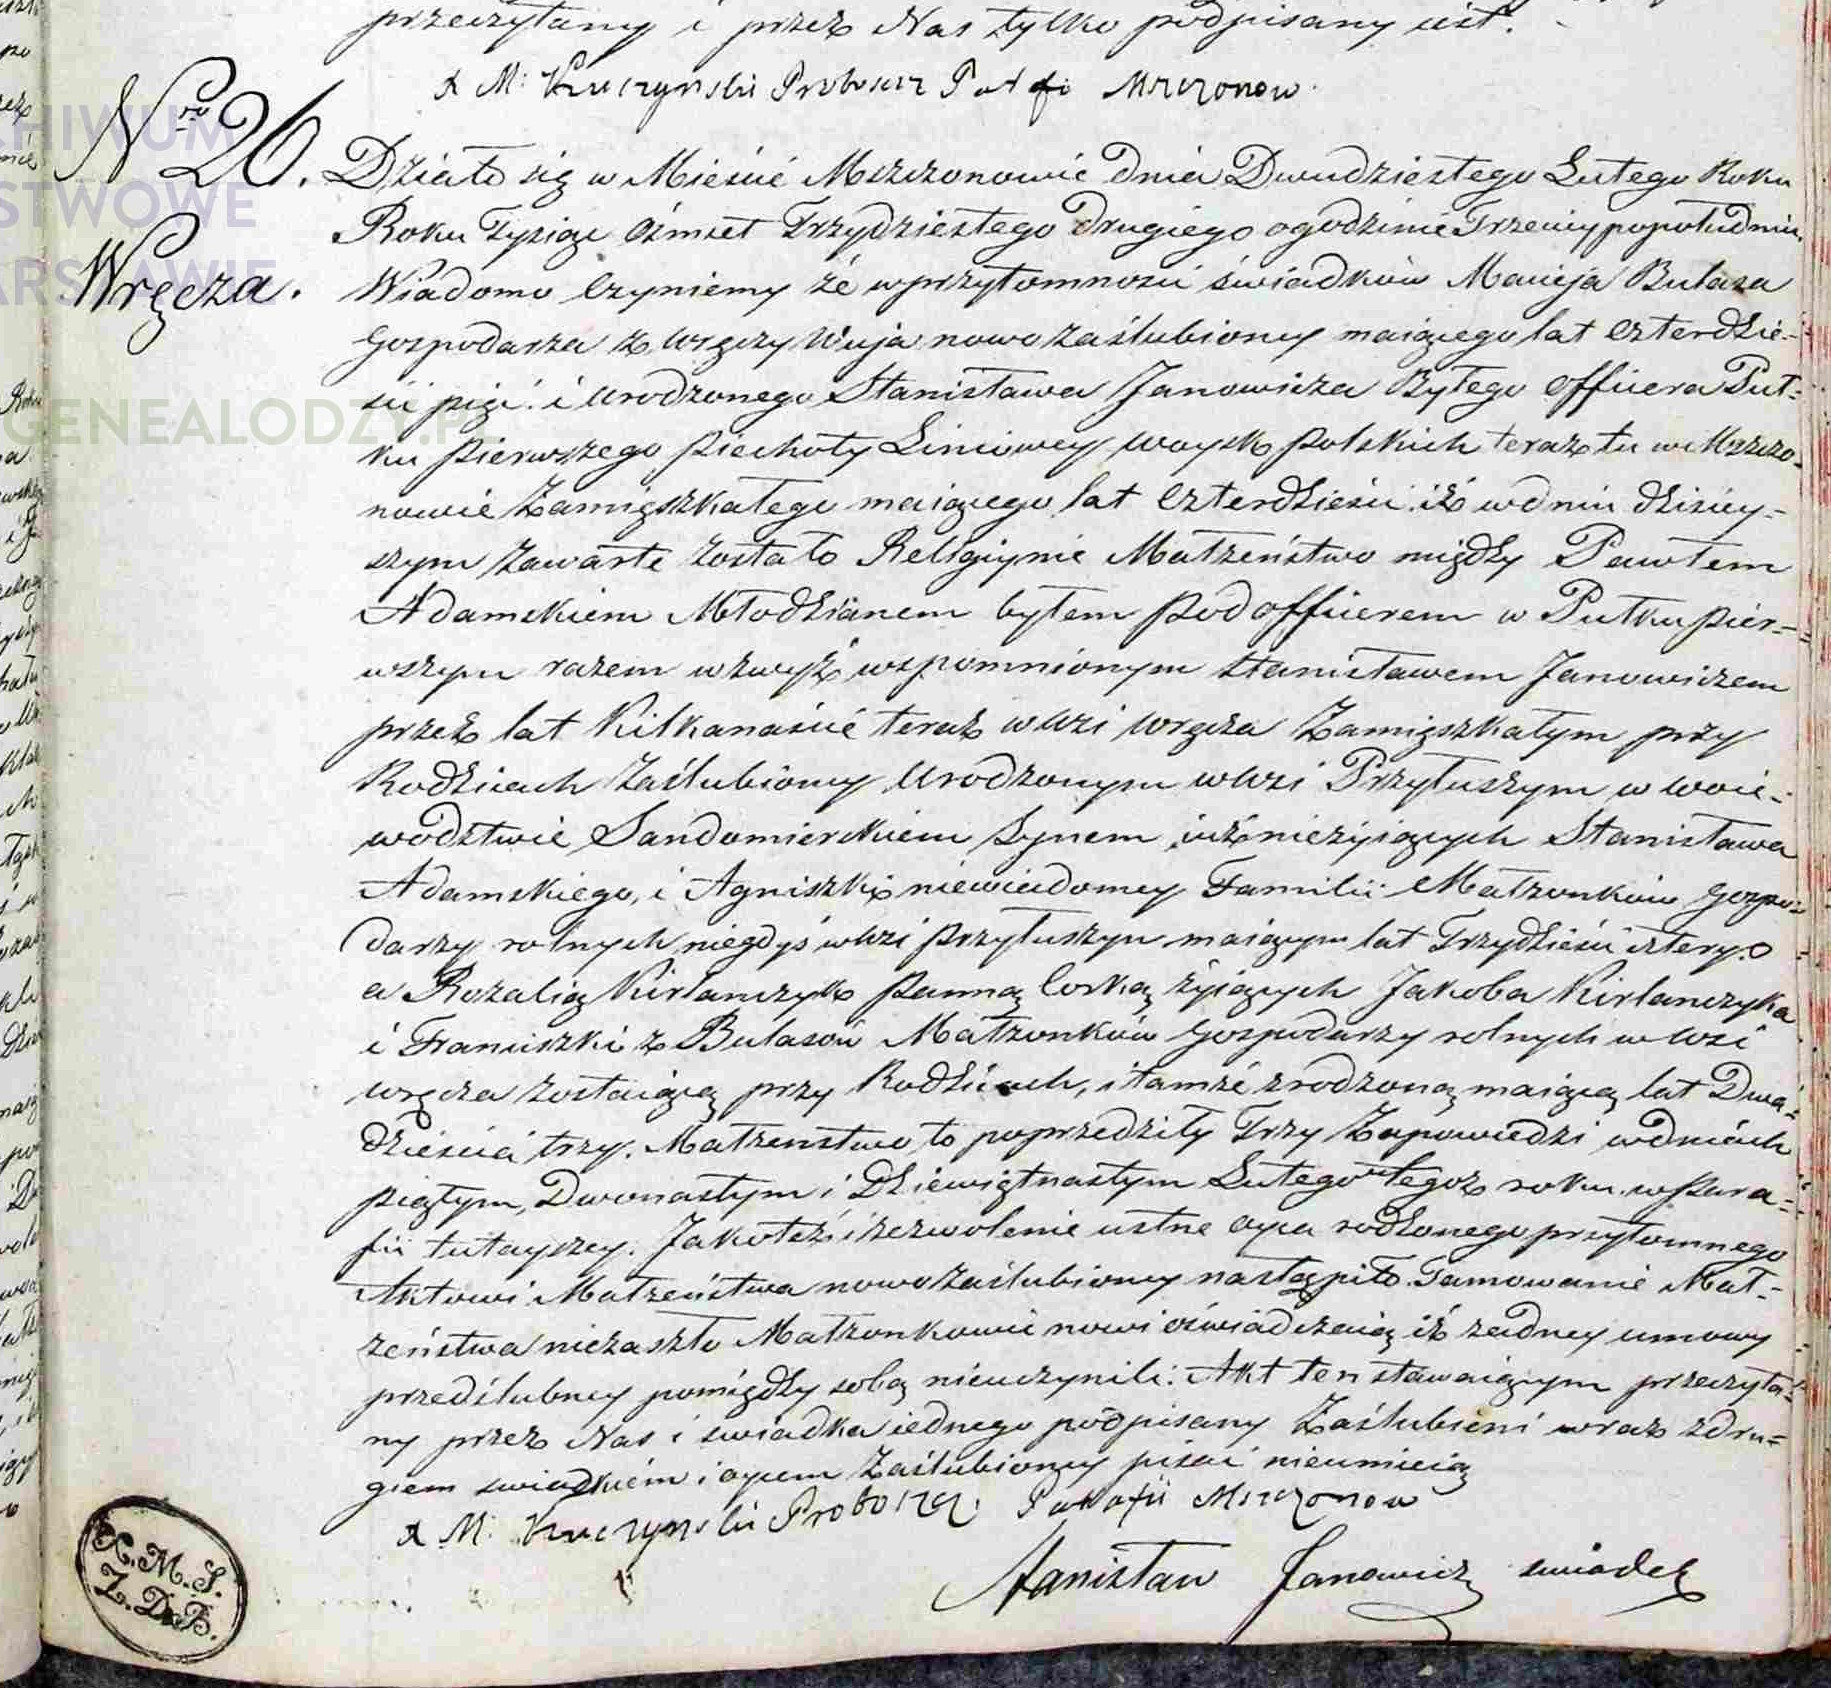 przeczytany i przez Nas tylko podpisany iest.
X M: Kuczynski Proboszcz Par fi Mszczonow.
Nro 26.
Wręcza.
Działo się w Mieście Mszczonowie dnia Dwudziestego Lutego Roku
Roku Tysiąc Ośmset Trzydziestego Drugiego o godzinie Trzeciey popołudniu.
Wiadomo Czyniemy że w przytomności świadków Macieja Bulasa
Gospodarza z Wręczy Wuja nowo zaślubioney maiącego lat Czterdzie-
ści pięć. i Urodzonego Stanisława Janowicza Byłego Officera Puł-
ku Pierwszego Piechoty Liniowey woysk Polskich teraz tu w Mszczo-
nowie Zamięszkałego maiącego lat Czterdzieści. iż w dniu dzisiey-
szym Zawarte Zostało Religiynie Małżeństwo między Pawłem
Adamskiem Młodzianem byłem Podofficerem w Pułku Pier-
wszym razem w zwyż wspomnionym Stanisławem Janowiczem
przez lat Kilkanaście teraz w Wsi Wręcza Zamięszkałym przy
Rodzicach Zaślubioney Urodzonym w Wsi Przytuszym w Woie-
wodztwie Sandomierskiem Synem iuż nieżyiących Stanisława
Adamskiego, i Agniszki niewiadomey Familii Małżonków Gospo-
darzy rolnych niegdyś w Wsi Przytuszym maiącym lat Trzydzieści cztery.
a Rozalią Kirlanczyk Panną Corką żyiących Jakoba Kirlanczyka
i Franciszki z Bulasów Małżonków Gospodarzy rolnych w Wsi
Wręcza zostaiącą przy Rodzicach, i tamże zrodzoną maiącą lat Dwa-
dzieścia trzy. Małżenstwo to poprzedziły Trzy Zapowiedzi w dniach
piątym, Dwonastym i Dziewiętnastym Lutego w tegoż roku w Para-
fii tutayszey. Jakoteż i zezwolenie ustne oyca rodzonego przytomnego
Aktowi Małżeństwa nowo Zaślubioney nastąpiło. Tamowanie Mał-
żeństwa niezaszło Małżonkowie nowi oświadczaią iż zadney umowy
przedślubney pomiędzy sobą nieuczynili. Akt ten stawaiącym przeczyta-
ny przez Nas i swiadka iednego podpisany Zaślubieni wraz zdru-
giem swiadkiem i oycem Zaślubioney pisać nieumieią
X M: Kuczynski Proboszcz. Parafii Mszczonow
Stanisław Janowicz swiadek
X. M. S.
Z. D. P.
ARCHIWUM
PAŃSTWOWE
WARSZAWIE
GENEALODZY.P